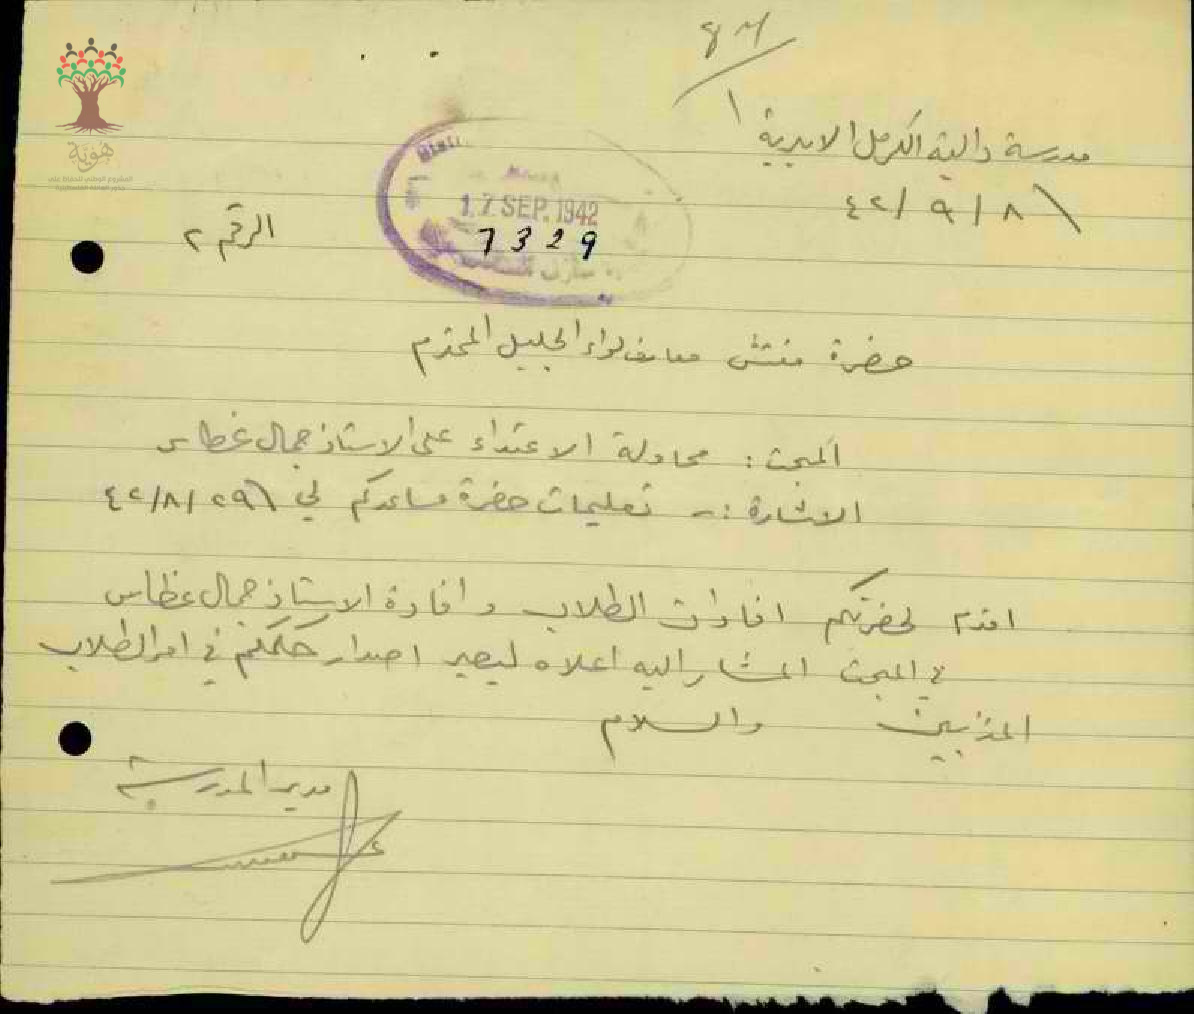 مدرسة دالية الكرمل الاميرية
٤٢/٩/٨
الرقم ٢
17 SEP. 1942
7329
حضرة مفتش معارف لواء الجليل المحترم
المبحث : محاولة الاعتداء على الاستاذ جمال غطاس
الاشارة :- تعليمات حضرة مساعدكم لي ٤٢/٨/٢٩
اقدم لحضرتكم افادات الطلاب وافادة الاستاذ جمال غطاس
في المبحث المشار اليه اعلاه ليصير اصدار حكمكم في امر الطلاب
المذنبين والسلام
مدير المدرسة
هوية